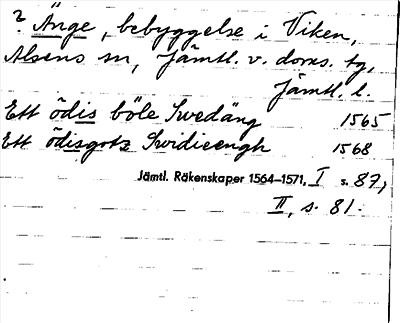 ? Änge, bebyggelse i Viken,
Alsens sn, Jämtl. v. doms. tg,
Jämtl. l.
Ett ödis böle Swedäng 1565
Ett ödisgotz Swidieengh 1568
Jämtl. Räkenskaper 1564–1571, I s. 87,
II, s. 81.